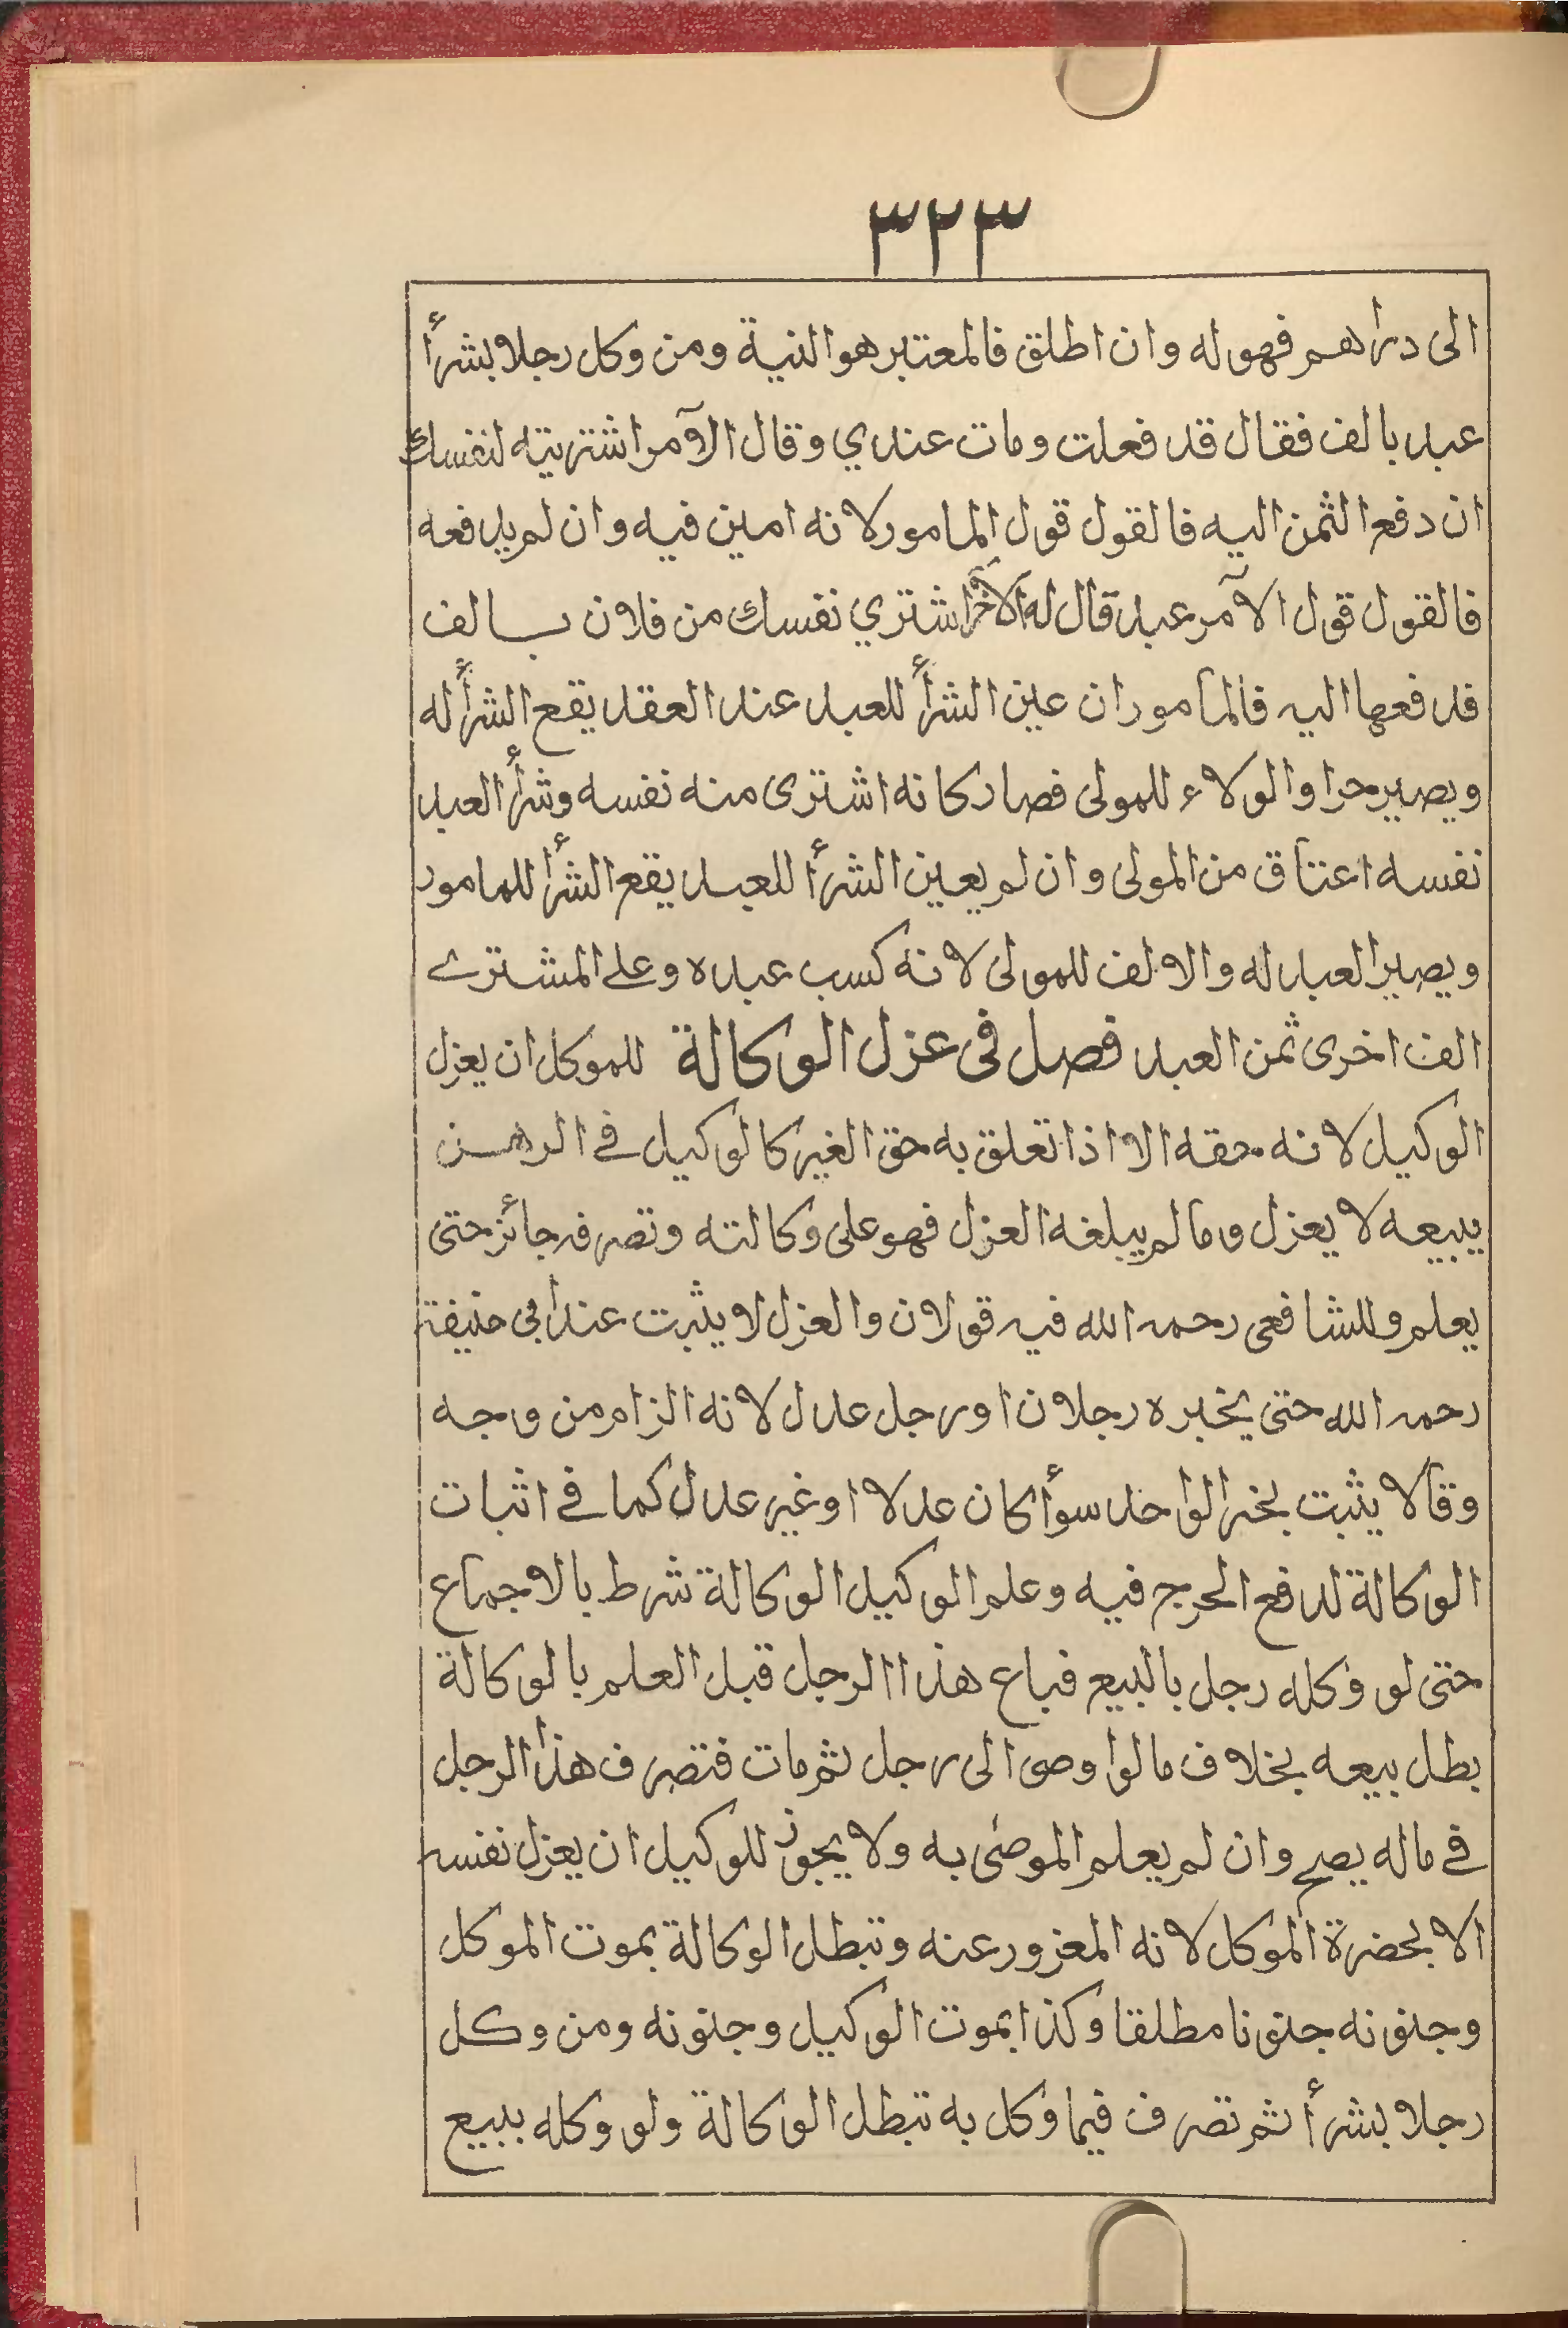 ٣٢٣
الى دراهم فهو له وان اطلق فالمعتبر هو النية ومن وكل رجلا بشرأ
عبد بالف فقال قد فعلت ومات عندي وقال الآمر اشتريته لنفسك
ان دفع الثمن اليه فالقول قول المامور لانه امين فيه وان لم يدفعه
فالقول قول الآمر عبد قال له الآخر اشتري نفسك من فلان بالف
فدفعها اليه فالمأمور ان عين الشرأ للعبد عند العقد يقع الشرأ له
ويصير حرا والولاء للمولى فصار كانه اشترى منه نفسه وشرأ العبد
نفسه اعتاق من المولى وان لم يعين الشرأ للعبد يقع الشرأ للمامور
ويصير العبد له والالف للمولى لانه كسب عبده وعلى المشترى
الف اخرى ثمن العبد فصل فى عزل الوكالة للموكل ان يعزل
الوكيل لانه حقه الا اذا تعلق به حق الغير كالوكيل فى الرهن
يبيعه لا يعزل وما لم يبلغه العزل فهو على وكالته وتصرفه جائز حتى
يعلم وللشافعى رحمه الله فيه قولان والعزل لا يثبت عند ابى حنيفة
رحمه الله حتى يخبره رجلان او رجل عدل لانه الزام من وجه
وقالا يثبت بخبر الواحد سوأ كان عدلا او غير عدل كما فى اثبات
الوكالة لدفع الحرج فيه وعلم الوكيل الوكالة شرط بالاجماع
حتى لو وكله رجل بالبيع فباع هذا الرجل قبل العلم بالوكالة
بطل بيعه بخلاف ما لو اوصى الى رجل ثم مات فتصرف هذا الرجل
فى ماله يصح وان لم يعلم الموصى به ولا يجوز للوكيل ان يعزل نفسه
الا بحضرة الموكل لانه المغرور عنه وتبطل الوكالة بموت الموكل
وجنونه جنونا مطلقا وكذا بموت الوكيل وجنونه ومن وكل
رجلا بشرأ ثم تصرف فيما وكل به تبطل الوكالة ولو وكله ببيع